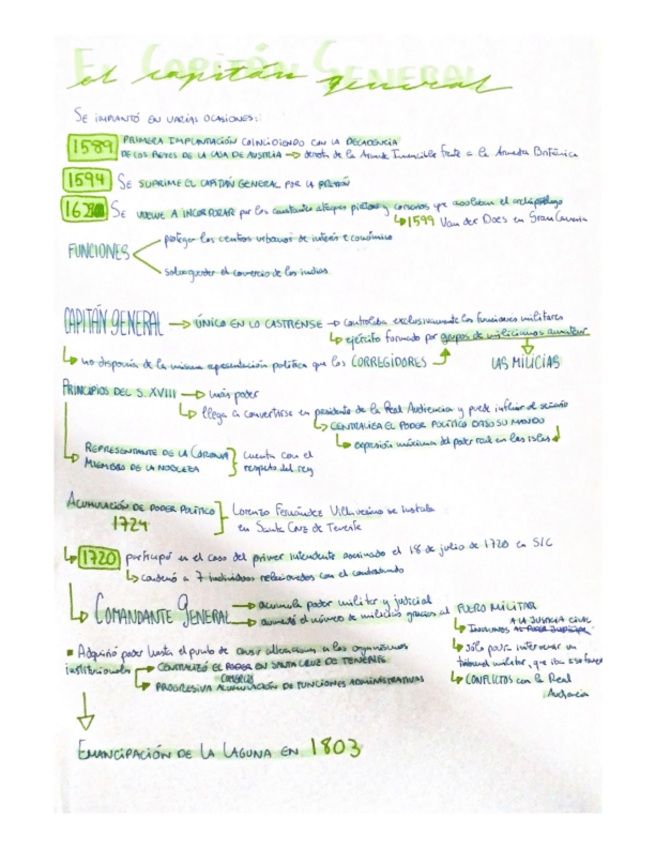 EL CAPITÁN GENERAL
el capitán general
SE IMPLANTÓ EN VARIAS OCASIONES:
1589 PRIMERA IMPLANTACIÓN COINCIDIENDO CON LA DECADENCIA
DE LOS REYES DE LA CASA DE AUSTRIA → derrota de la Armada Invencible frente a la Armada Británica
1594 SE SUPRIME EL CAPITÁN GENERAL POR LA PRESIÓN
SE VUELVE A INCORPORAR por los constantes ataques piratas y corsarios que asolaban el archipiélago
↳ 1599 Van der Does en Gran Canaria
FUNCIONES
proteger los centros urbanos de interés económico
salvaguardar el comercio de las indias
CAPITÁN GENERAL → ÚNICO EN LO CASTRENSE → controlaba exclusivamente las funciones militares
↳ ejército formado por grupos de milicianos amateur
↳ no disponía de la misma representación política que los CORREGIDORES
LAS MILICIAS
PRINCIPIOS DEL S. XVIII → más poder
↳ llega a convertirse en presidente de la Real Audiencia y puede influir al señorío
↳ CENTRALIZA EL PODER POLÍTICO BAJO SU MANDO
↳ expresión máxima del poder real en las islas
REPRESENTANTE DE LA CORONA
MIEMBRO DE LA NOBLEZA
cuenta con el
respeto del rey
ACUMULACIÓN DE PODER POLÍTICO
1724
Lorenzo Fernández Villavicencio se instala
en Santa Cruz de Tenerife
↳ 1720 participó en el caso del primer intendente asesinado el 18 de julio de 1720 en S/C
↳ condenó a 7 individuos relacionados con el contrabando
↳ COMANDANTE GENERAL → acumula poder militar y judicial
→ aumentó el número de milicias gracias al FUERO MILITAR
A LA JUSTICIA CIVIL
↳ INMUNES AL PODER JUDICIAL
↳ sólo podía intervenir un
tribunal militar, que iba a su favor
↳ CONFLICTOS con la Real
Audiencia
▪ Adquirió poder hasta el punto de causar alteraciones a los organismos
institucionales → CENTRALIZÓ EL PODER EN SANTA CRUZ DE TENERIFE
COMERCIO
PROGRESIVA ACUMULACIÓN DE FUNCIONES ADMINISTRATIVAS
EMANCIPACIÓN DE LA LAGUNA EN 1803